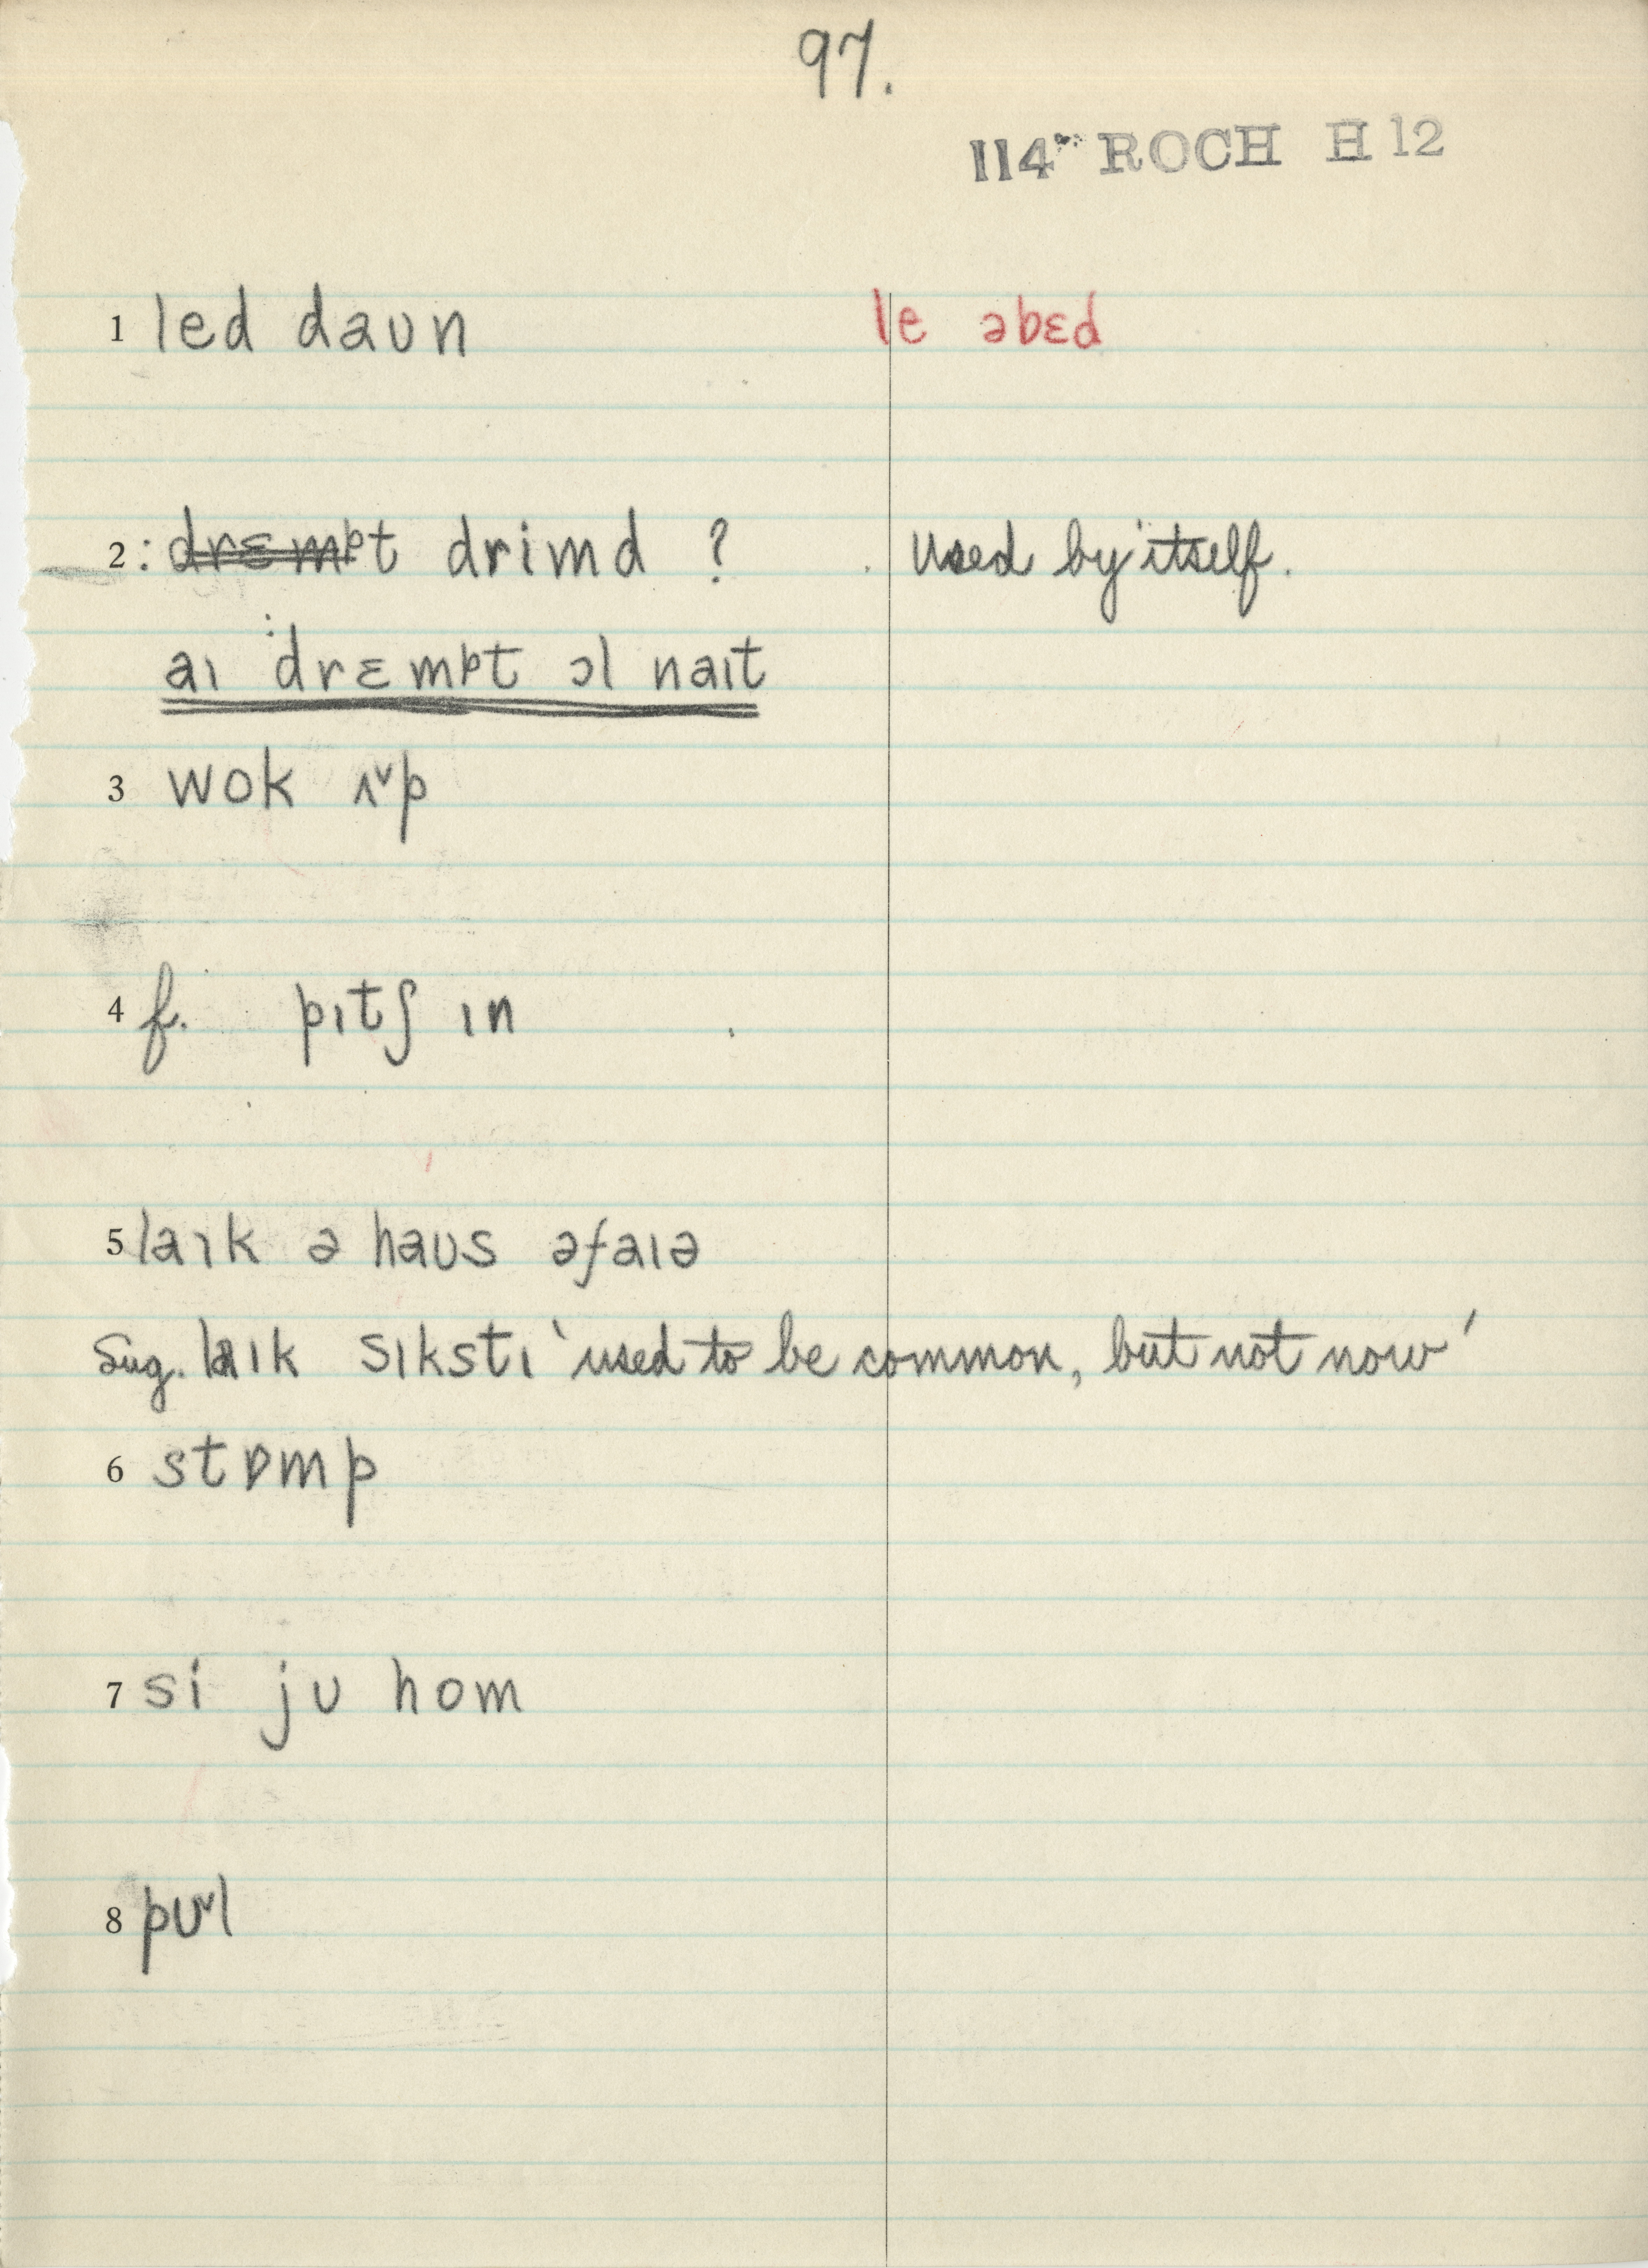 97.
114 ROCH H 12
1 led daʊn le əbɛd
2 : drɛmpt drimd ? used by itself.
aɪ drɛmpt ɔl naɪt
3 wok ʌ˅p
4 f. pɪtʃ ɪn
5 laɪk ə haʊs əfaɪə
Sug. laɪk sɪkstɪ 'used to be common, but not now'
6 stɒmp
7 si jʊ hom
8 pʊ˅l